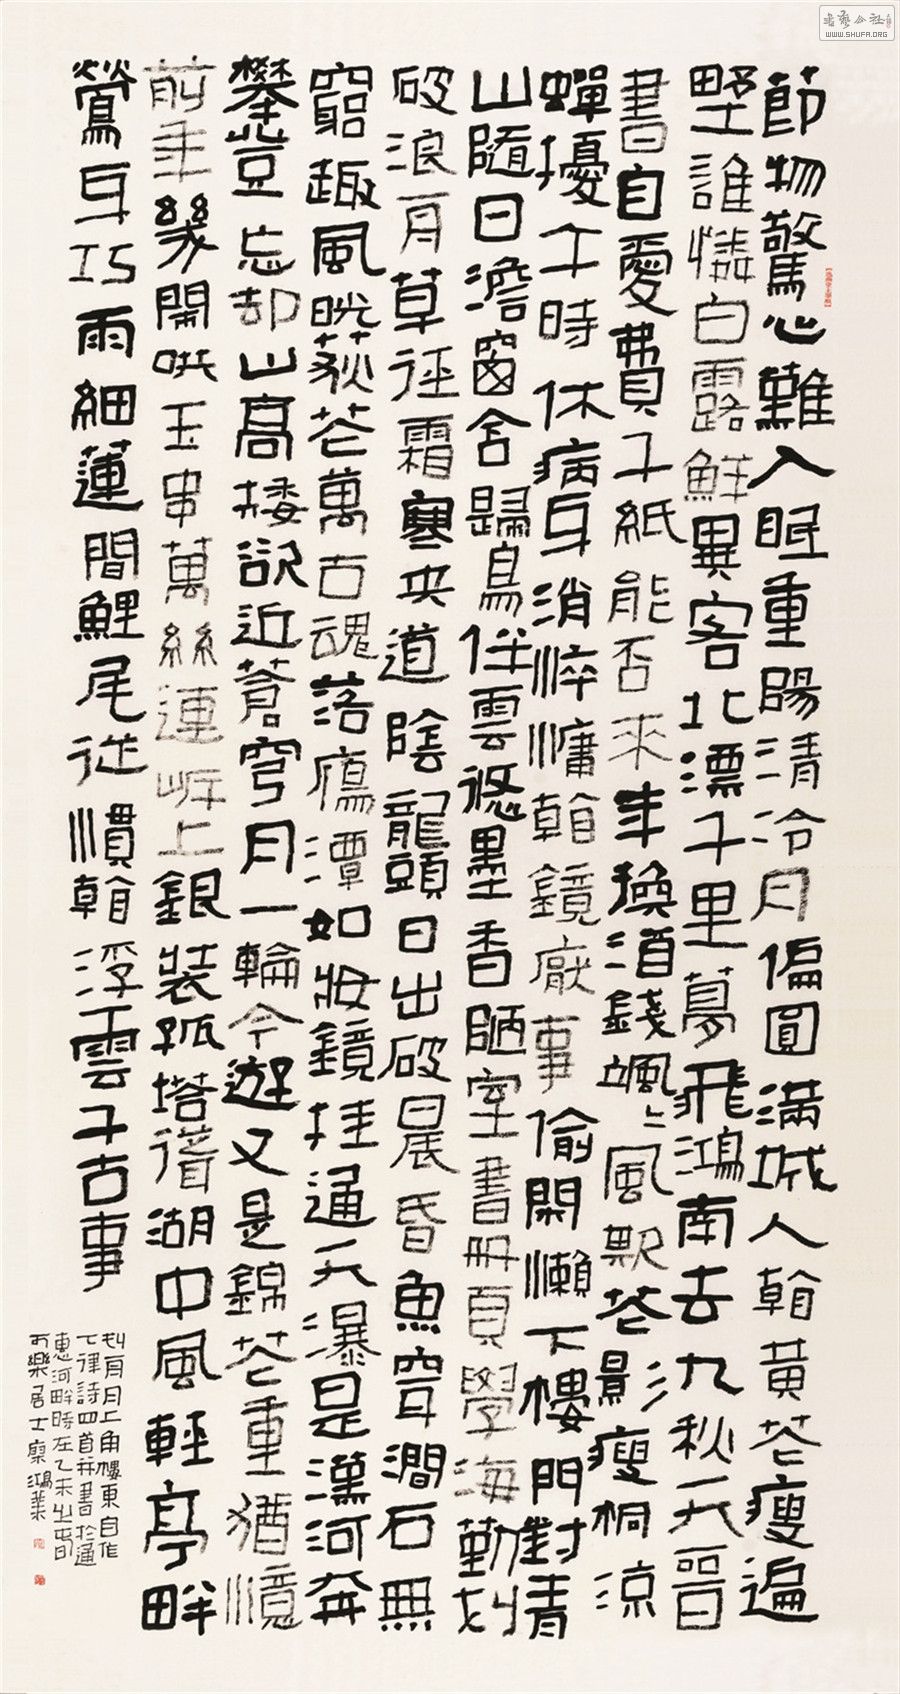 節物驚心難入眠重陽清冷月偏圓滿城人看黃花瘦遍
野誰憐白露鮮異客北漂千里夢飛鴻南去九秋天晉
書自愛費千紙能否來年換酒錢颯〻風欺花影瘦桐涼
蟬擾午時休病身消瘁慵看鏡厭事偷閑懶下樓門對青
山隨日澹窗含歸鳥任雲悠墨香陋室書冊頁學海勤劃
破浪舟草徑霜寒央道陰龍頭日出破晨昏魚穿澗石無
窮趣風晃荻花萬古魂落雁潭如妝鏡挂通天瀑是漢河奔
攀豈忘却山高樓欲近蒼穹月一輪今遊又是錦花重猶憶
前年幾開哄玉串萬絲連岸上銀裝孤塔湖中風輕亭畔
鶯身巧雨細蓮間鯉尾從慣看浮雲千古事
月上角樓東自作
七律詩四首并書於通
惠河畔時在乙未之春日
可樂居士鴻業
WWW.SHUFA.ORG